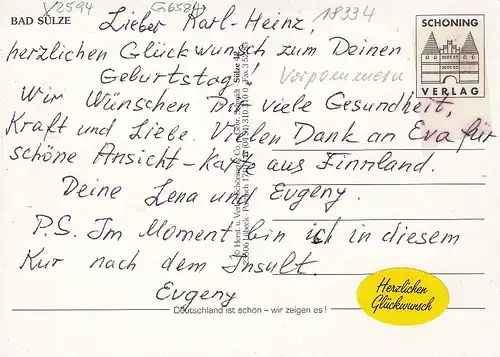 V2594 G6584 18334
BAD SÜLZE
Lieber Karl-Heinz,
herzlichen Glückwunsch zum Deinen
Geburtstag!
Vorpommern
Wir Wünschen Dir viele Gesundheit,
Kraft und Liebe. Vielen Dank an Eva für
schöne Ansicht-Karte aus Finnland.
Deine Lena und Evgeny.
P.S. Im Moment bin ich in diesem
Kur nach dem Insult.
Evgeny
SCHÖNING
VERLAG
Herzlichen
Glückwunsch
Deutschland ist schön – wir zeigen es!